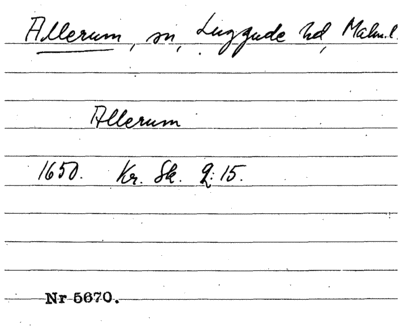 Allerum, sn, Luggude hd, Malm.l.
Allerum
1650. Kr. Sk. 2:15.
Nr 5670.